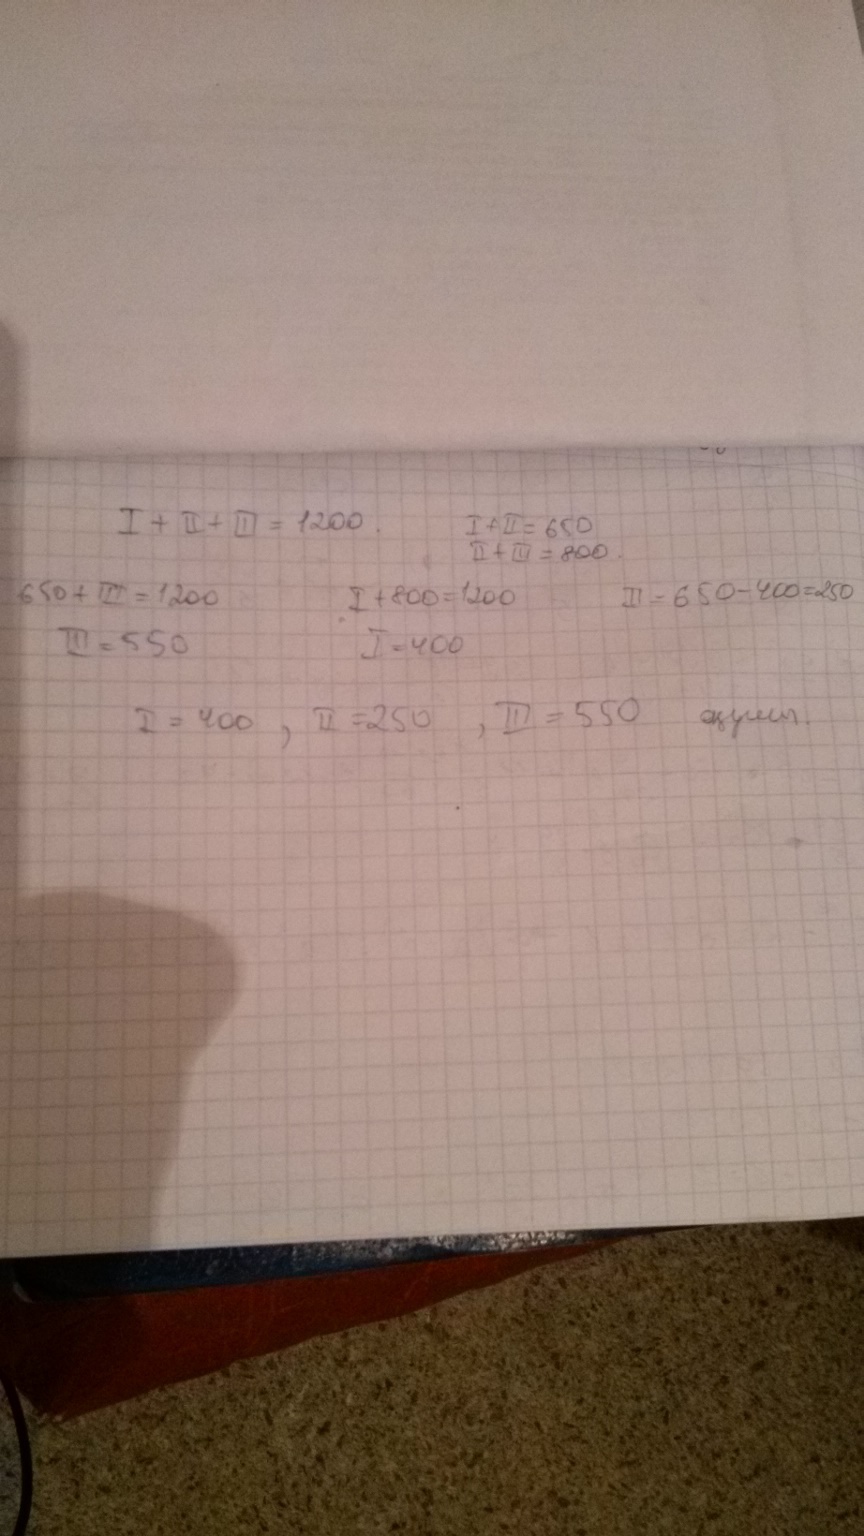 I + II + III = 1200.
I+II = 650
II+III = 800.
650 + III = 1200
I + 800 = 1200
II = 650-400=250
III = 550
I = 400
I = 400 , II = 250 , III = 550